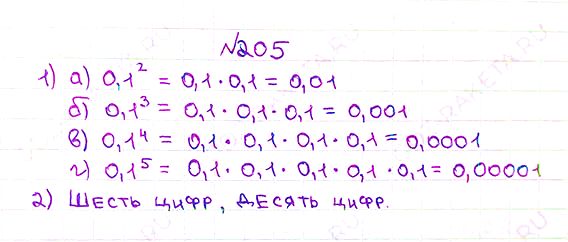 №205
1) а) 0,1² = 0,1 · 0,1 = 0,01
б) 0,1³ = 0,1 · 0,1 · 0,1 = 0,001
в) 0,1⁴ = 0,1 · 0,1 · 0,1 · 0,1 = 0,0001
г) 0,1⁵ = 0,1 · 0,1 · 0,1 · 0,1 · 0,1 = 0,00001
2) Шесть цифр, десять цифр.